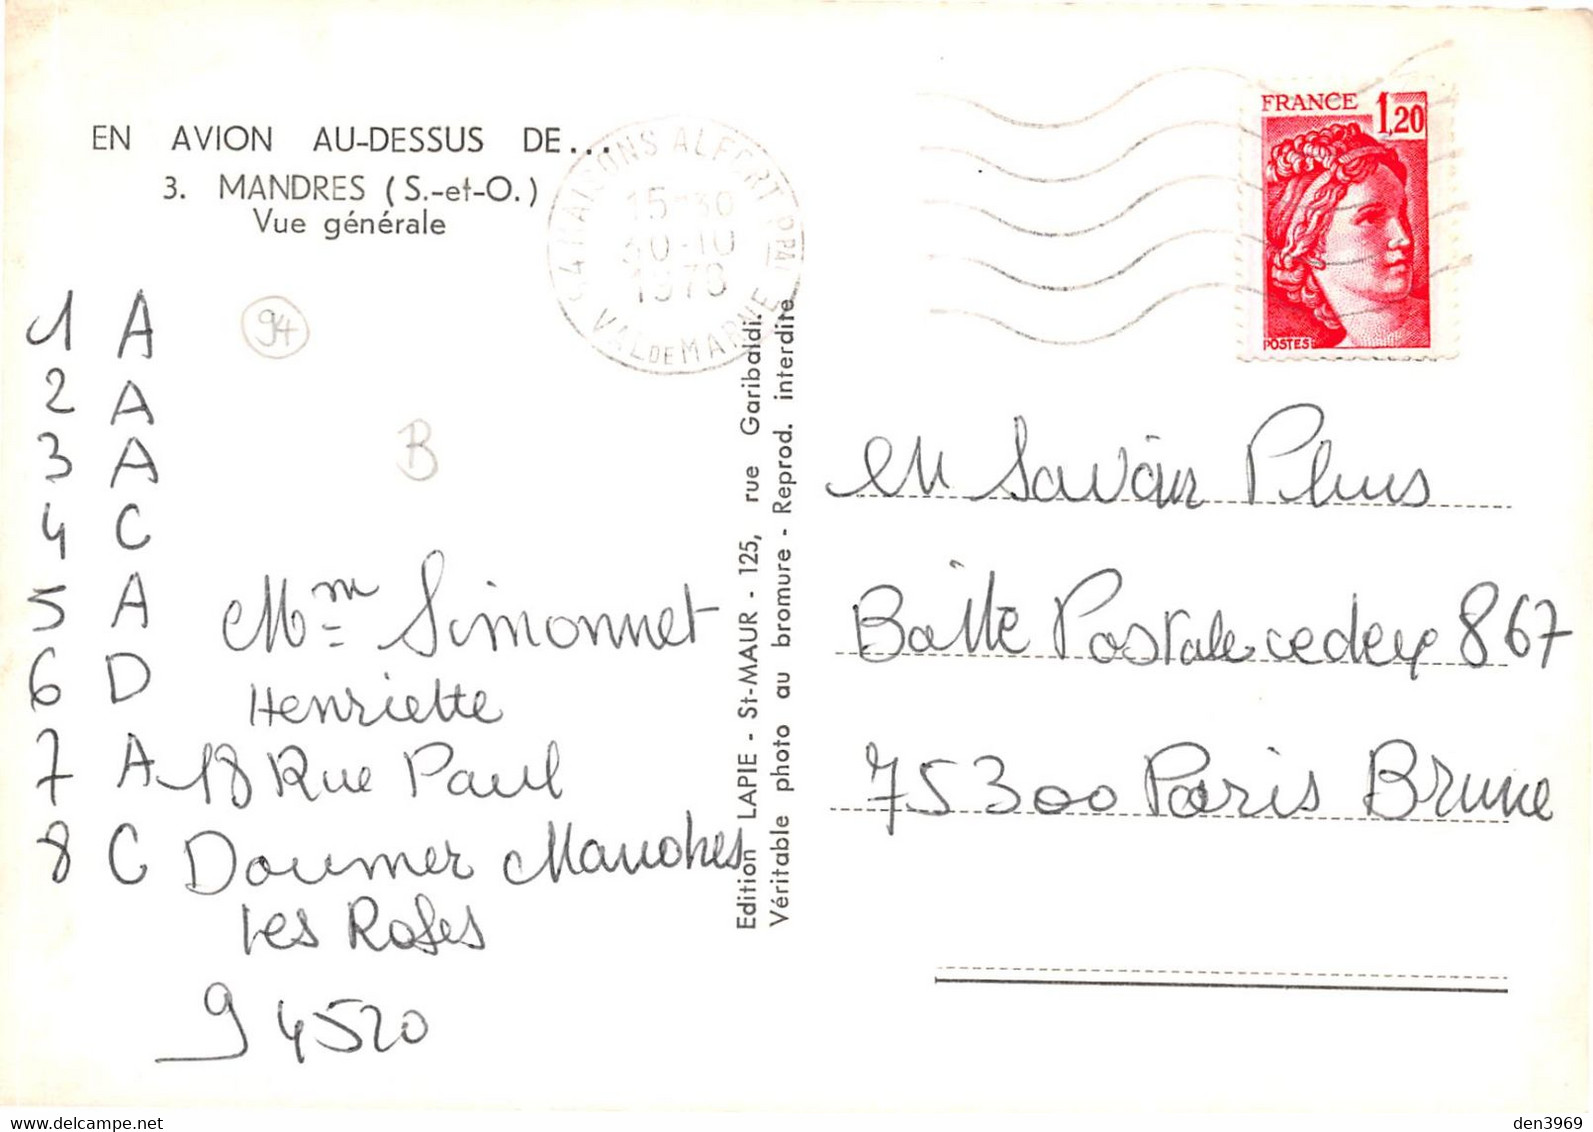 EN AVION AU-DESSUS DE...
3. MANDRES (S.-et-O.)
Vue générale
94 MAISONS ALFORT PPAL
15-30
30-10
1978
VAL DE MARNE
FRANCE 1,20
POSTES
94
B
1 A
2 A
3 A
4 C
5 A
6 D
7 A
8 C
Mme Simonnet
Henriette
18 Rue Paul
Doumer Mandres
les Roses
94520
Edition LAPIE - St-MAUR - 125, rue Garibaldi.
Véritable photo au bromure - Reprod. interdite
en Savoir Plus
Boite Postale cedex 867
75300 Paris Brune
delcampe.net
den3969